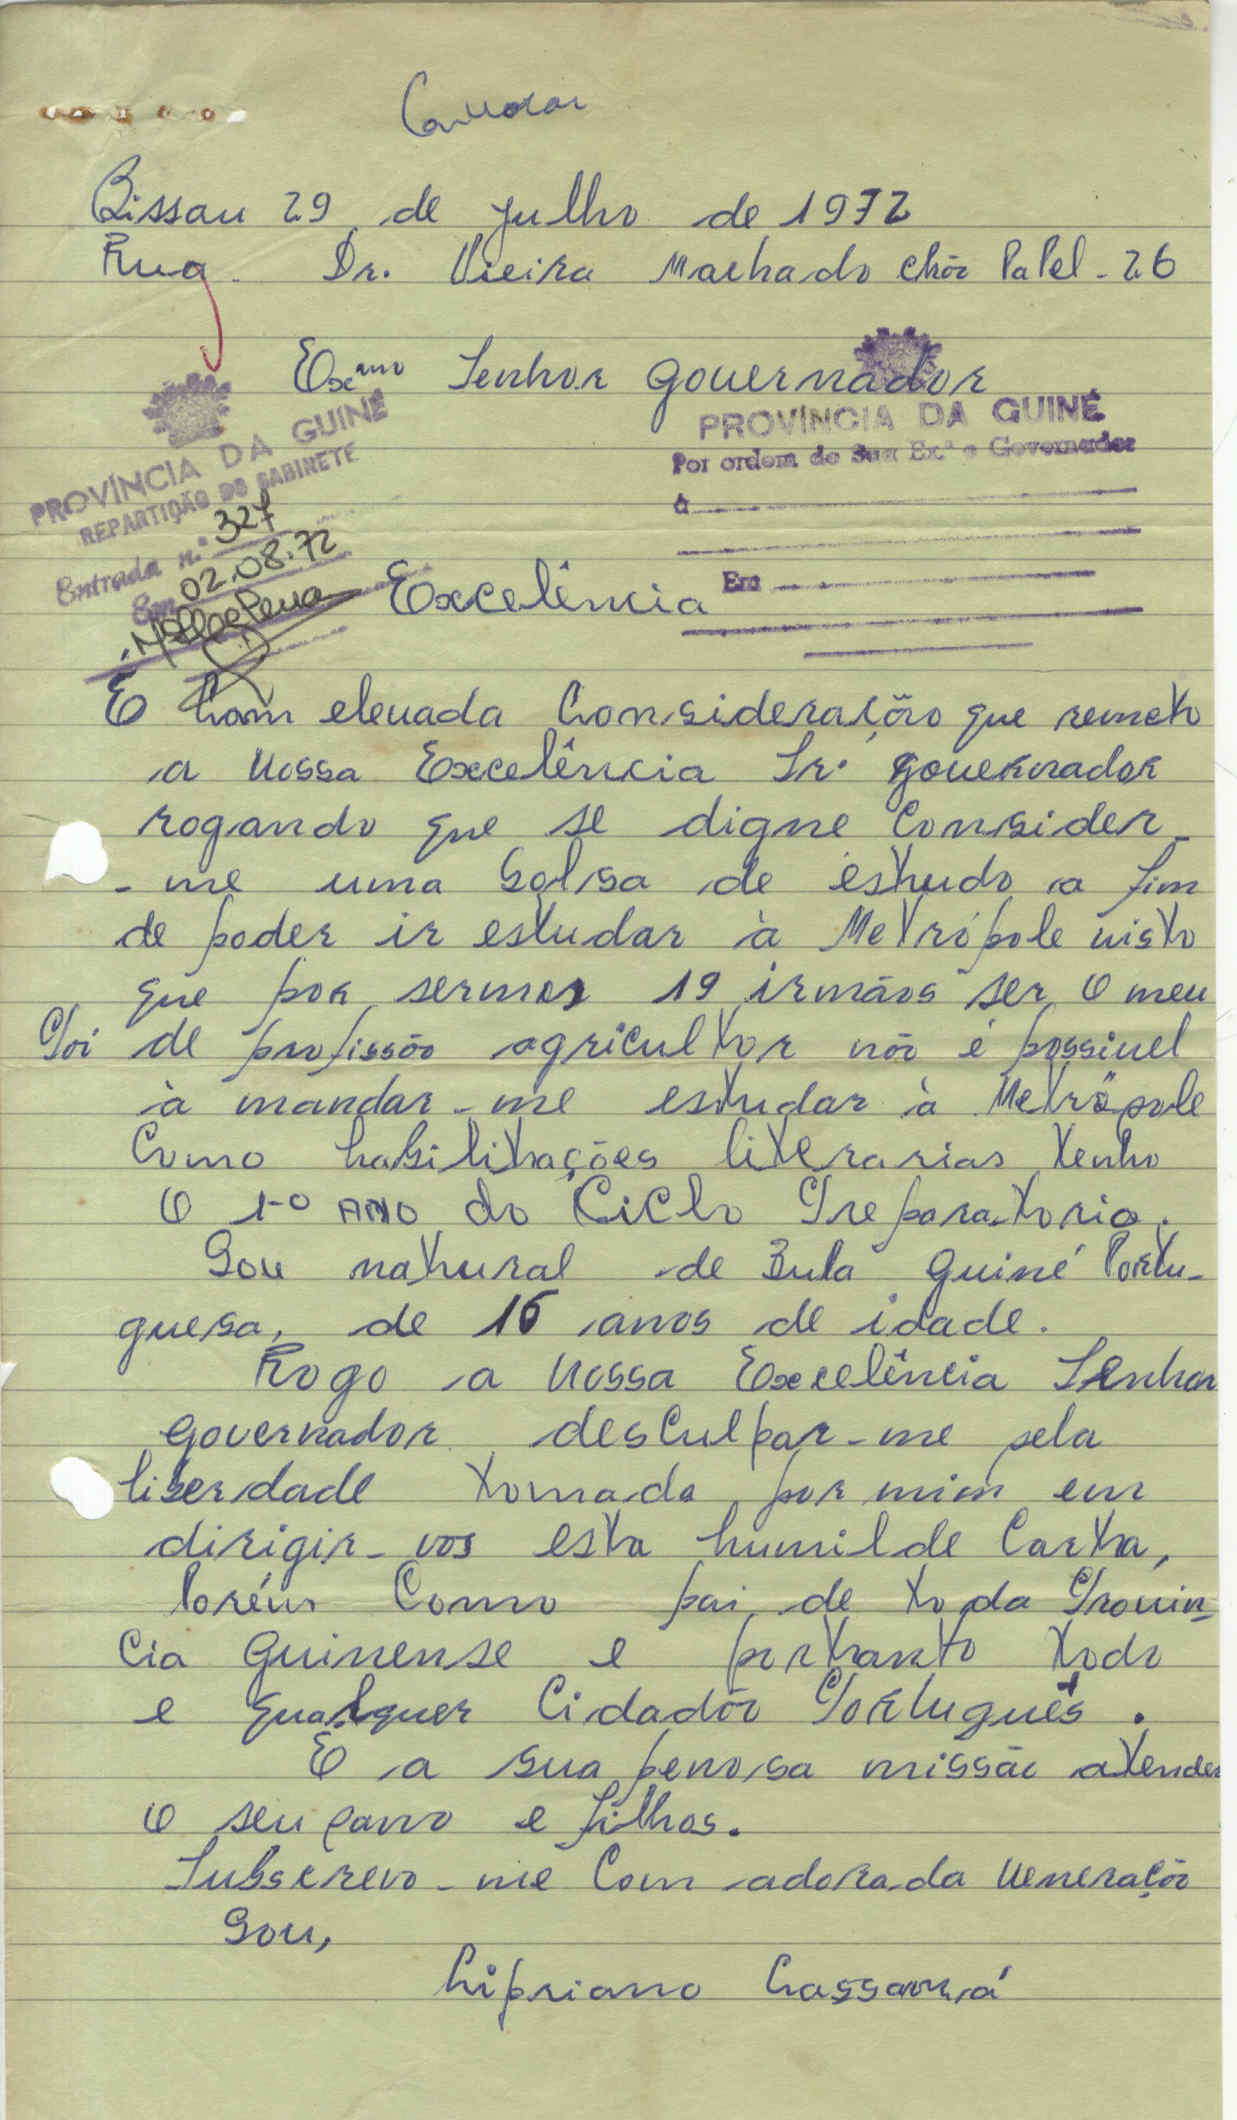 Bissau 29 de julho de 1972
Rua Dr. Vieira Machado chão Papel - 26
Exmo Senhor Governador
PROVÍNCIA DA GUINÉ
Por ordem de Sua Ex.ª o Governador
à
Em
PROVÍNCIA DA GUINÉ
REPARTIÇÃO DO GABINETE
Entrada n.º 327
Em 02.08.72
Excelência
É Com elevada Consideração que remeto
a Vossa Excelência Sr. Governador
rogando que se digne Consider-
-me uma bolsa de estudo a fim
de poder ir estudar à Metrópole visto
que por sermos 19 irmãos ser o meu
Pai de profissão agricultor não é possivel
à mandar-me estudar à Metrópole
Como habilitações literarias tenho
O 1-º ANO do Ciclo Preparatorio.
Sou natural de Bula Guiné Portu-
guesa, de 16 anos de idade.
Rogo a Vossa Excelência Senhor
Governador desculpar-me pela
liberdade tomada por mim em
dirigir-vos esta humilde Carta,
Porém Como pai de toda Provin-
cia Guinense e portanto todo
e qualquer Cidadão Português.
É a sua penosa missão atender
O seu povo e filhos.
Subscrevo-me Com adorada Veneração
Sou,
Cipriano Cassamá